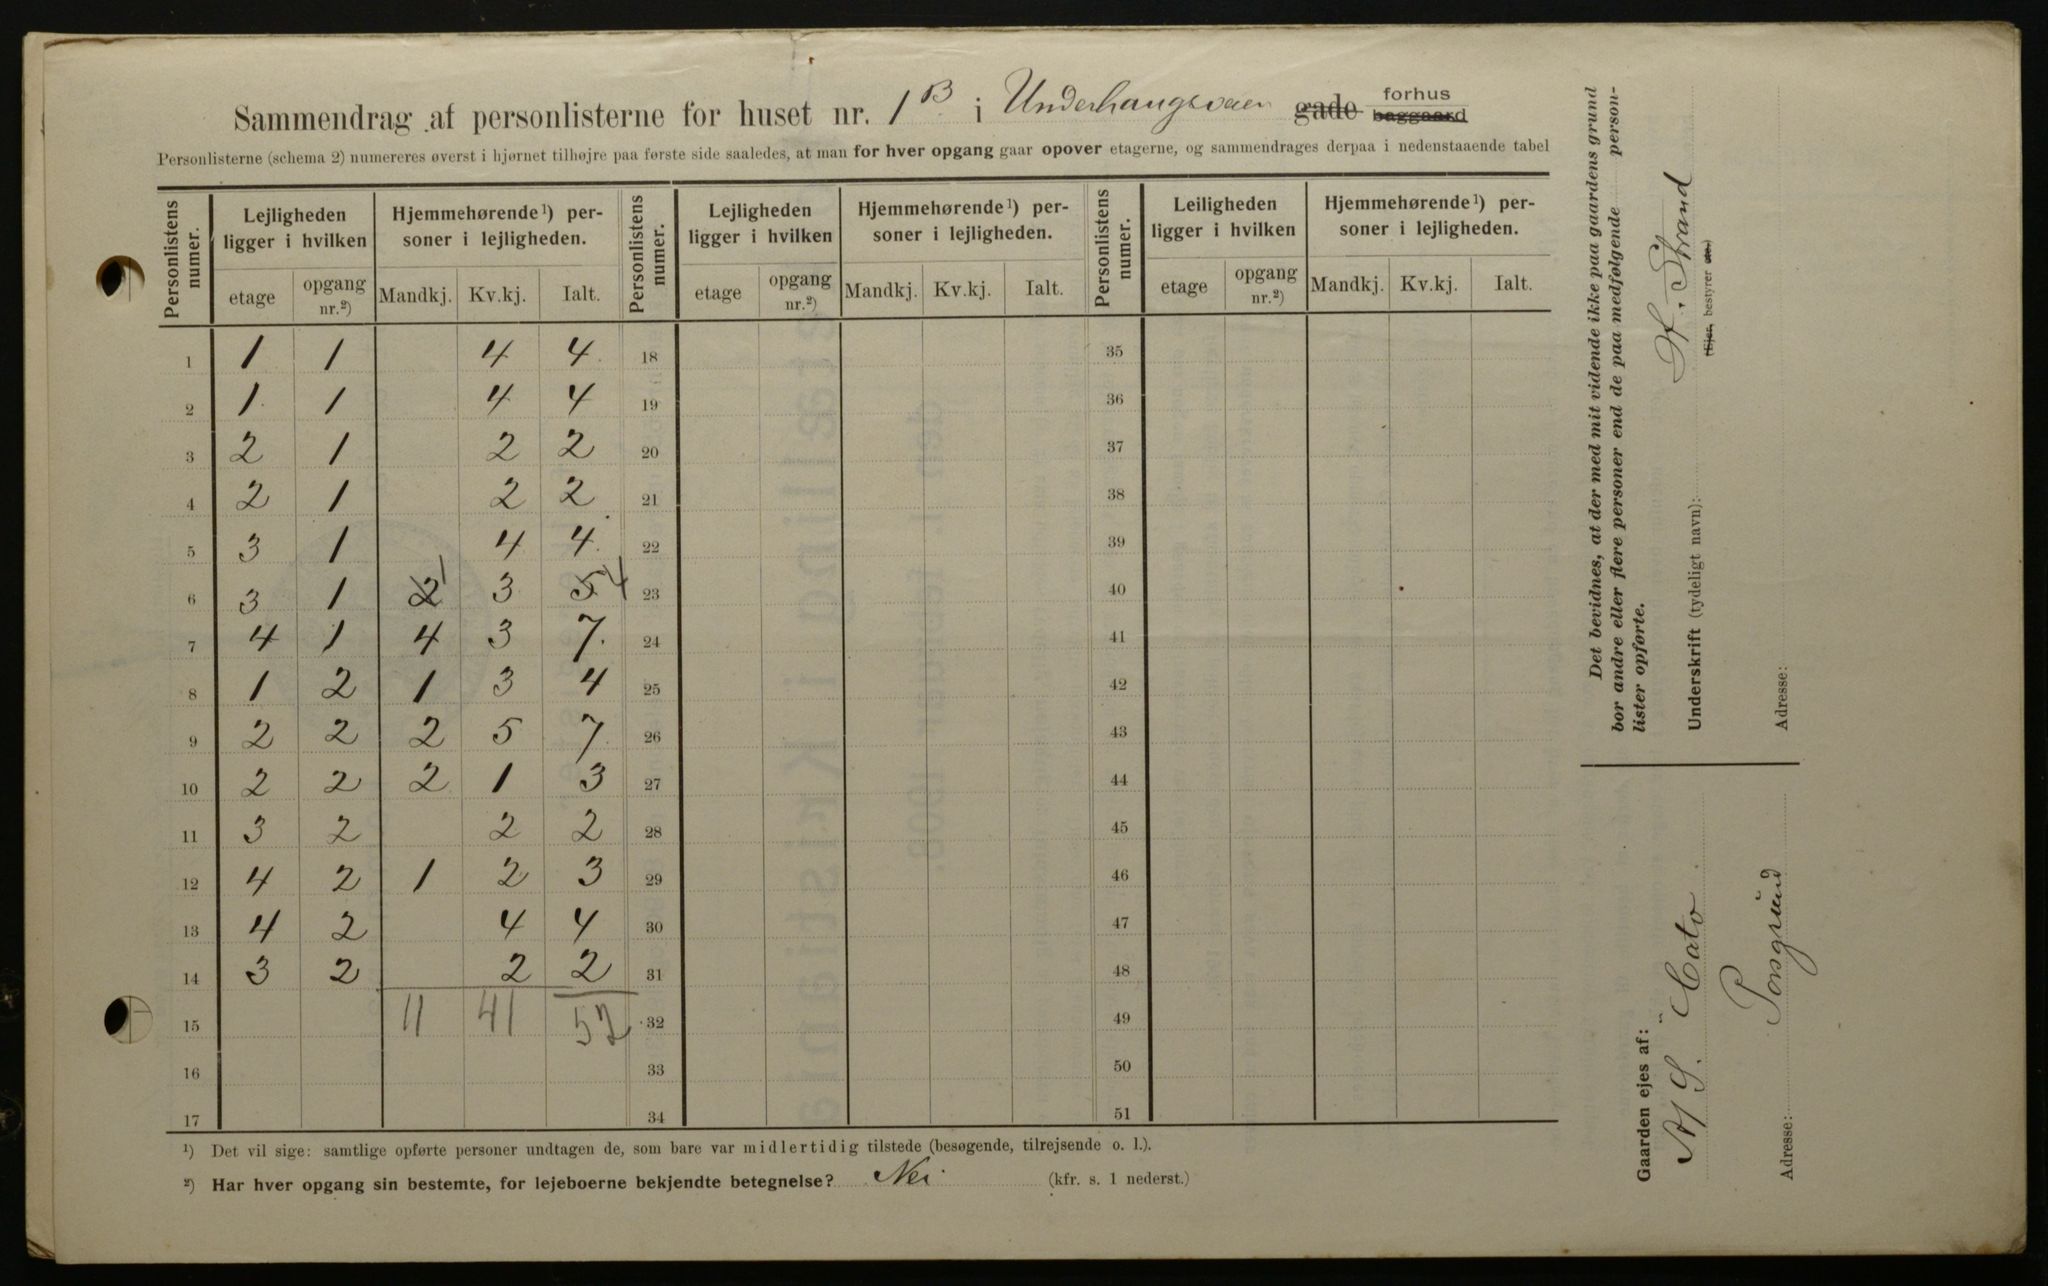 Sammendrag af personlisterne for huset nr. 1 B i Underhaugsveien gade forhus baggaard
Personlisterne (schema 2) numereres øverst i hjørnet tilhøjre paa første side saaledes, at man for hver opgang gaar opover etagerne, og sammendrages derpaa i nedenstaaende tabel
Personlistens numer. Lejligheden ligger i hvilken Hjemmehørende ¹) personer i lejligheden. Personlistens numer. Lejligheden ligger i hvilken Hjemmehørende ¹) personer i lejligheden. Personlistens numer. Leiligheden ligger i hvilken Hjemmehørende ¹) personer i lejligheden.
etage opgang nr.²) Mandkj. Kv.kj. Ialt. etage opgang nr.²) Mandkj. Kv.kj. Ialt. etage opgang nr.²) Mandkj. Kv.kj. Ialt.
1 1 1 4 4 18 35
2 1 1 4 4 19 36
3 2 1 2 2 20 37
4 2 1 2 2 21 38
5 3 1 4 4 22 39
6 3 1 2 1 3 5 4 23 40
7 4 1 4 3 7 24 41
8 1 2 1 3 4 25 42
9 2 2 2 5 7 26 43
10 2 2 2 1 3 27 44
11 3 2 2 2 28 45
12 4 2 1 2 3 29 46
13 4 2 4 4 30 47
14 3 2 2 2 31 48
15 11 41 52 32 49
16 33 50
17 34 51
¹) Det vil sige: samtlige opførte personer undtagen de, som bare var midlertidig tilstede (besøgende, tilrejsende o. l.).
²) Har hver opgang sin bestemte, for lejeboerne bekjendte betegnelse? Nei (kfr. s. 1 nederst.)
Det bevidnes, at der med mit vidende ikke paa gaardens grund
bor andre eller flere personer end de paa medfølgende person-
lister opførte.
Underskrift (tydeligt navn): H. Strand
(Ejer, bestyrer etc.)
Adresse:
Gaarden ejes af:
A/S. "Cato"
Adresse: Porsgrund